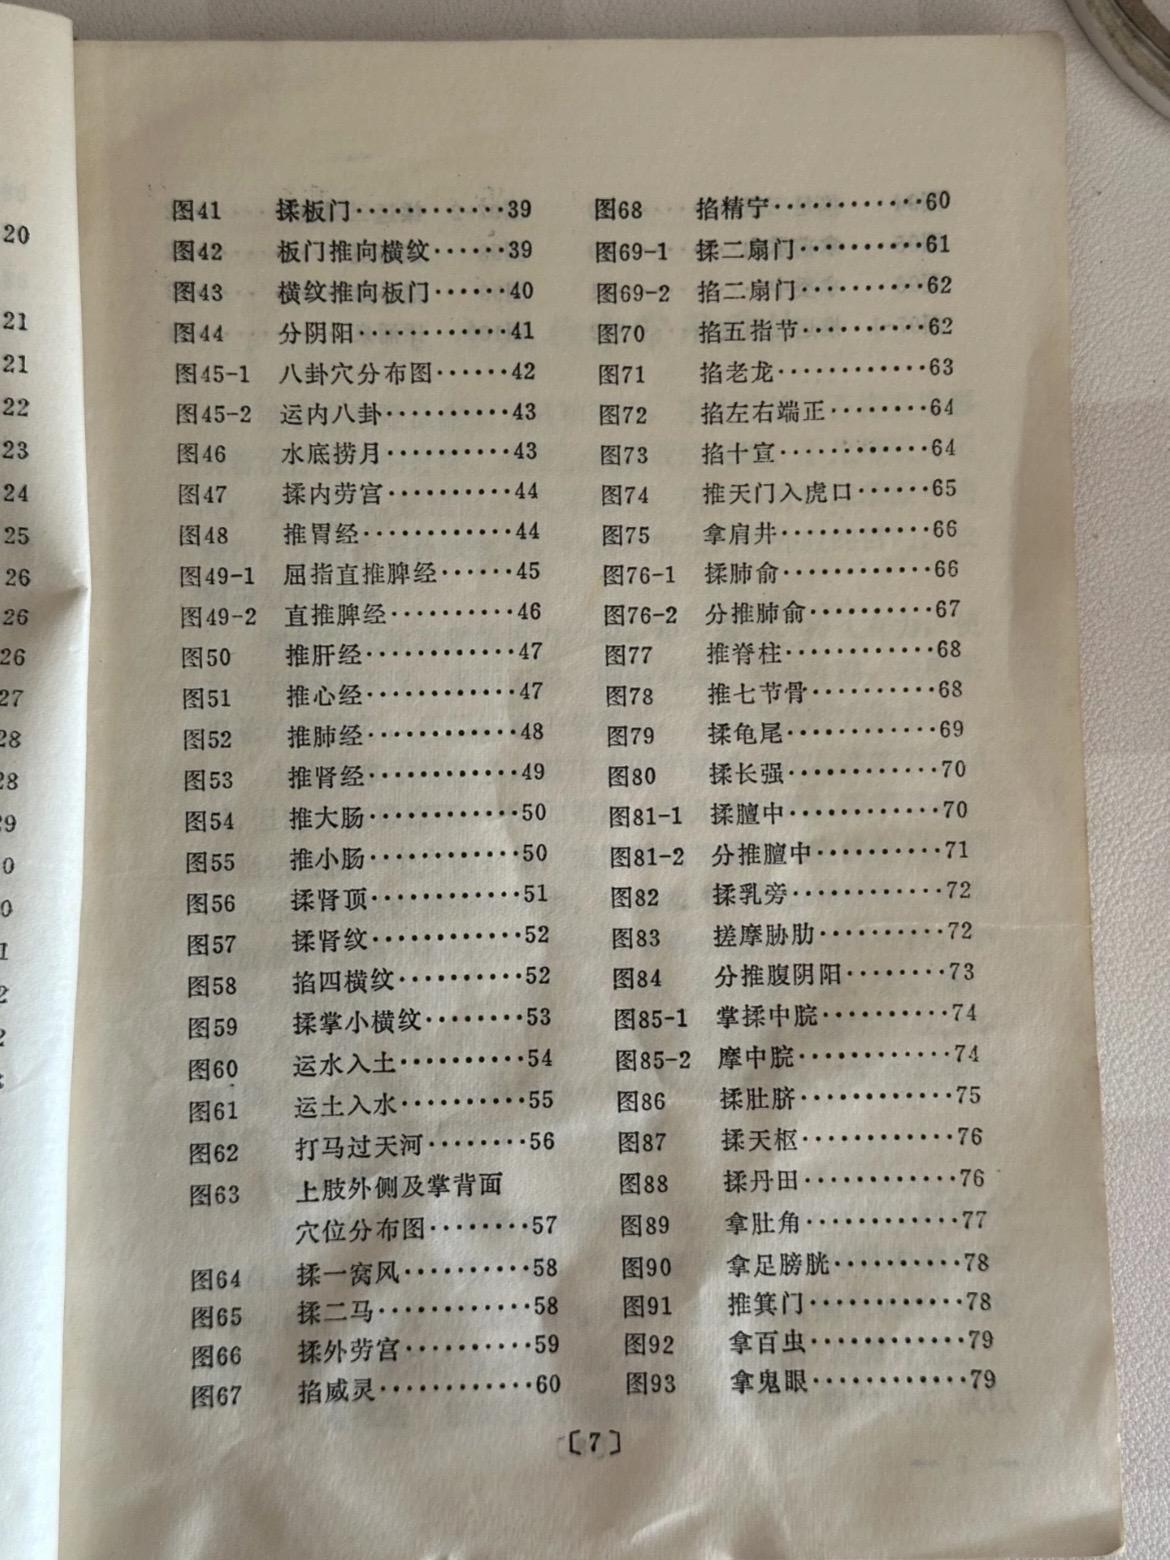 20
21
21
22
23
24
25
26
26
26
27
28
28
29
图41 揉板门············39
图42 板门推向横纹······39
图43 横纹推向板门······40
图44 分阴阳············41
图45-1 八卦穴分布图······42
图45-2 运内八卦··········43
图46 水底捞月··········43
图47 揉内劳宫··········44
图48 推胃经············44
图49-1 屈指直推脾经······45
图49-2 直推脾经··········46
图50 推肝经············47
图51 推心经············47
图52 推肺经············48
图53 推肾经············49
图54 推大肠············50
图55 推小肠············50
图56 揉肾顶············51
图57 揉肾纹············52
图58 掐四横纹··········52
图59 揉掌小横纹········53
图60 运水入土··········54
图61 运土入水··········55
图62 打马过天河········56
图63 上肢外侧及掌背面
穴位分布图········57
图64 揉一窝风··········58
图65 揉二马············58
图66 揉外劳宫··········59
图67 掐威灵············60
图68 掐精宁············60
图69-1 揉二扇门··········61
图69-2 掐二扇门··········62
图70 掐五指节··········62
图71 掐老龙············63
图72 掐左右端正········64
图73 掐十宣············64
图74 推天门入虎口······65
图75 拿肩井············66
图76-1 揉肺俞············66
图76-2 分推肺俞··········67
图77 推脊柱············68
图78 推七节骨··········68
图79 揉龟尾············69
图80 揉长强············70
图81-1 揉膻中············70
图81-2 分推膻中··········71
图82 揉乳旁············72
图83 搓摩胁肋··········72
图84 分推腹阴阳········73
图85-1 掌揉中脘··········74
图85-2 摩中脘············74
图86 揉肚脐············75
图87 揉天枢············76
图88 揉丹田············76
图89 拿肚角············77
图90 拿足膀胱··········78
图91 推箕门············78
图92 拿百虫············79
图93 拿鬼眼············79
〔7〕